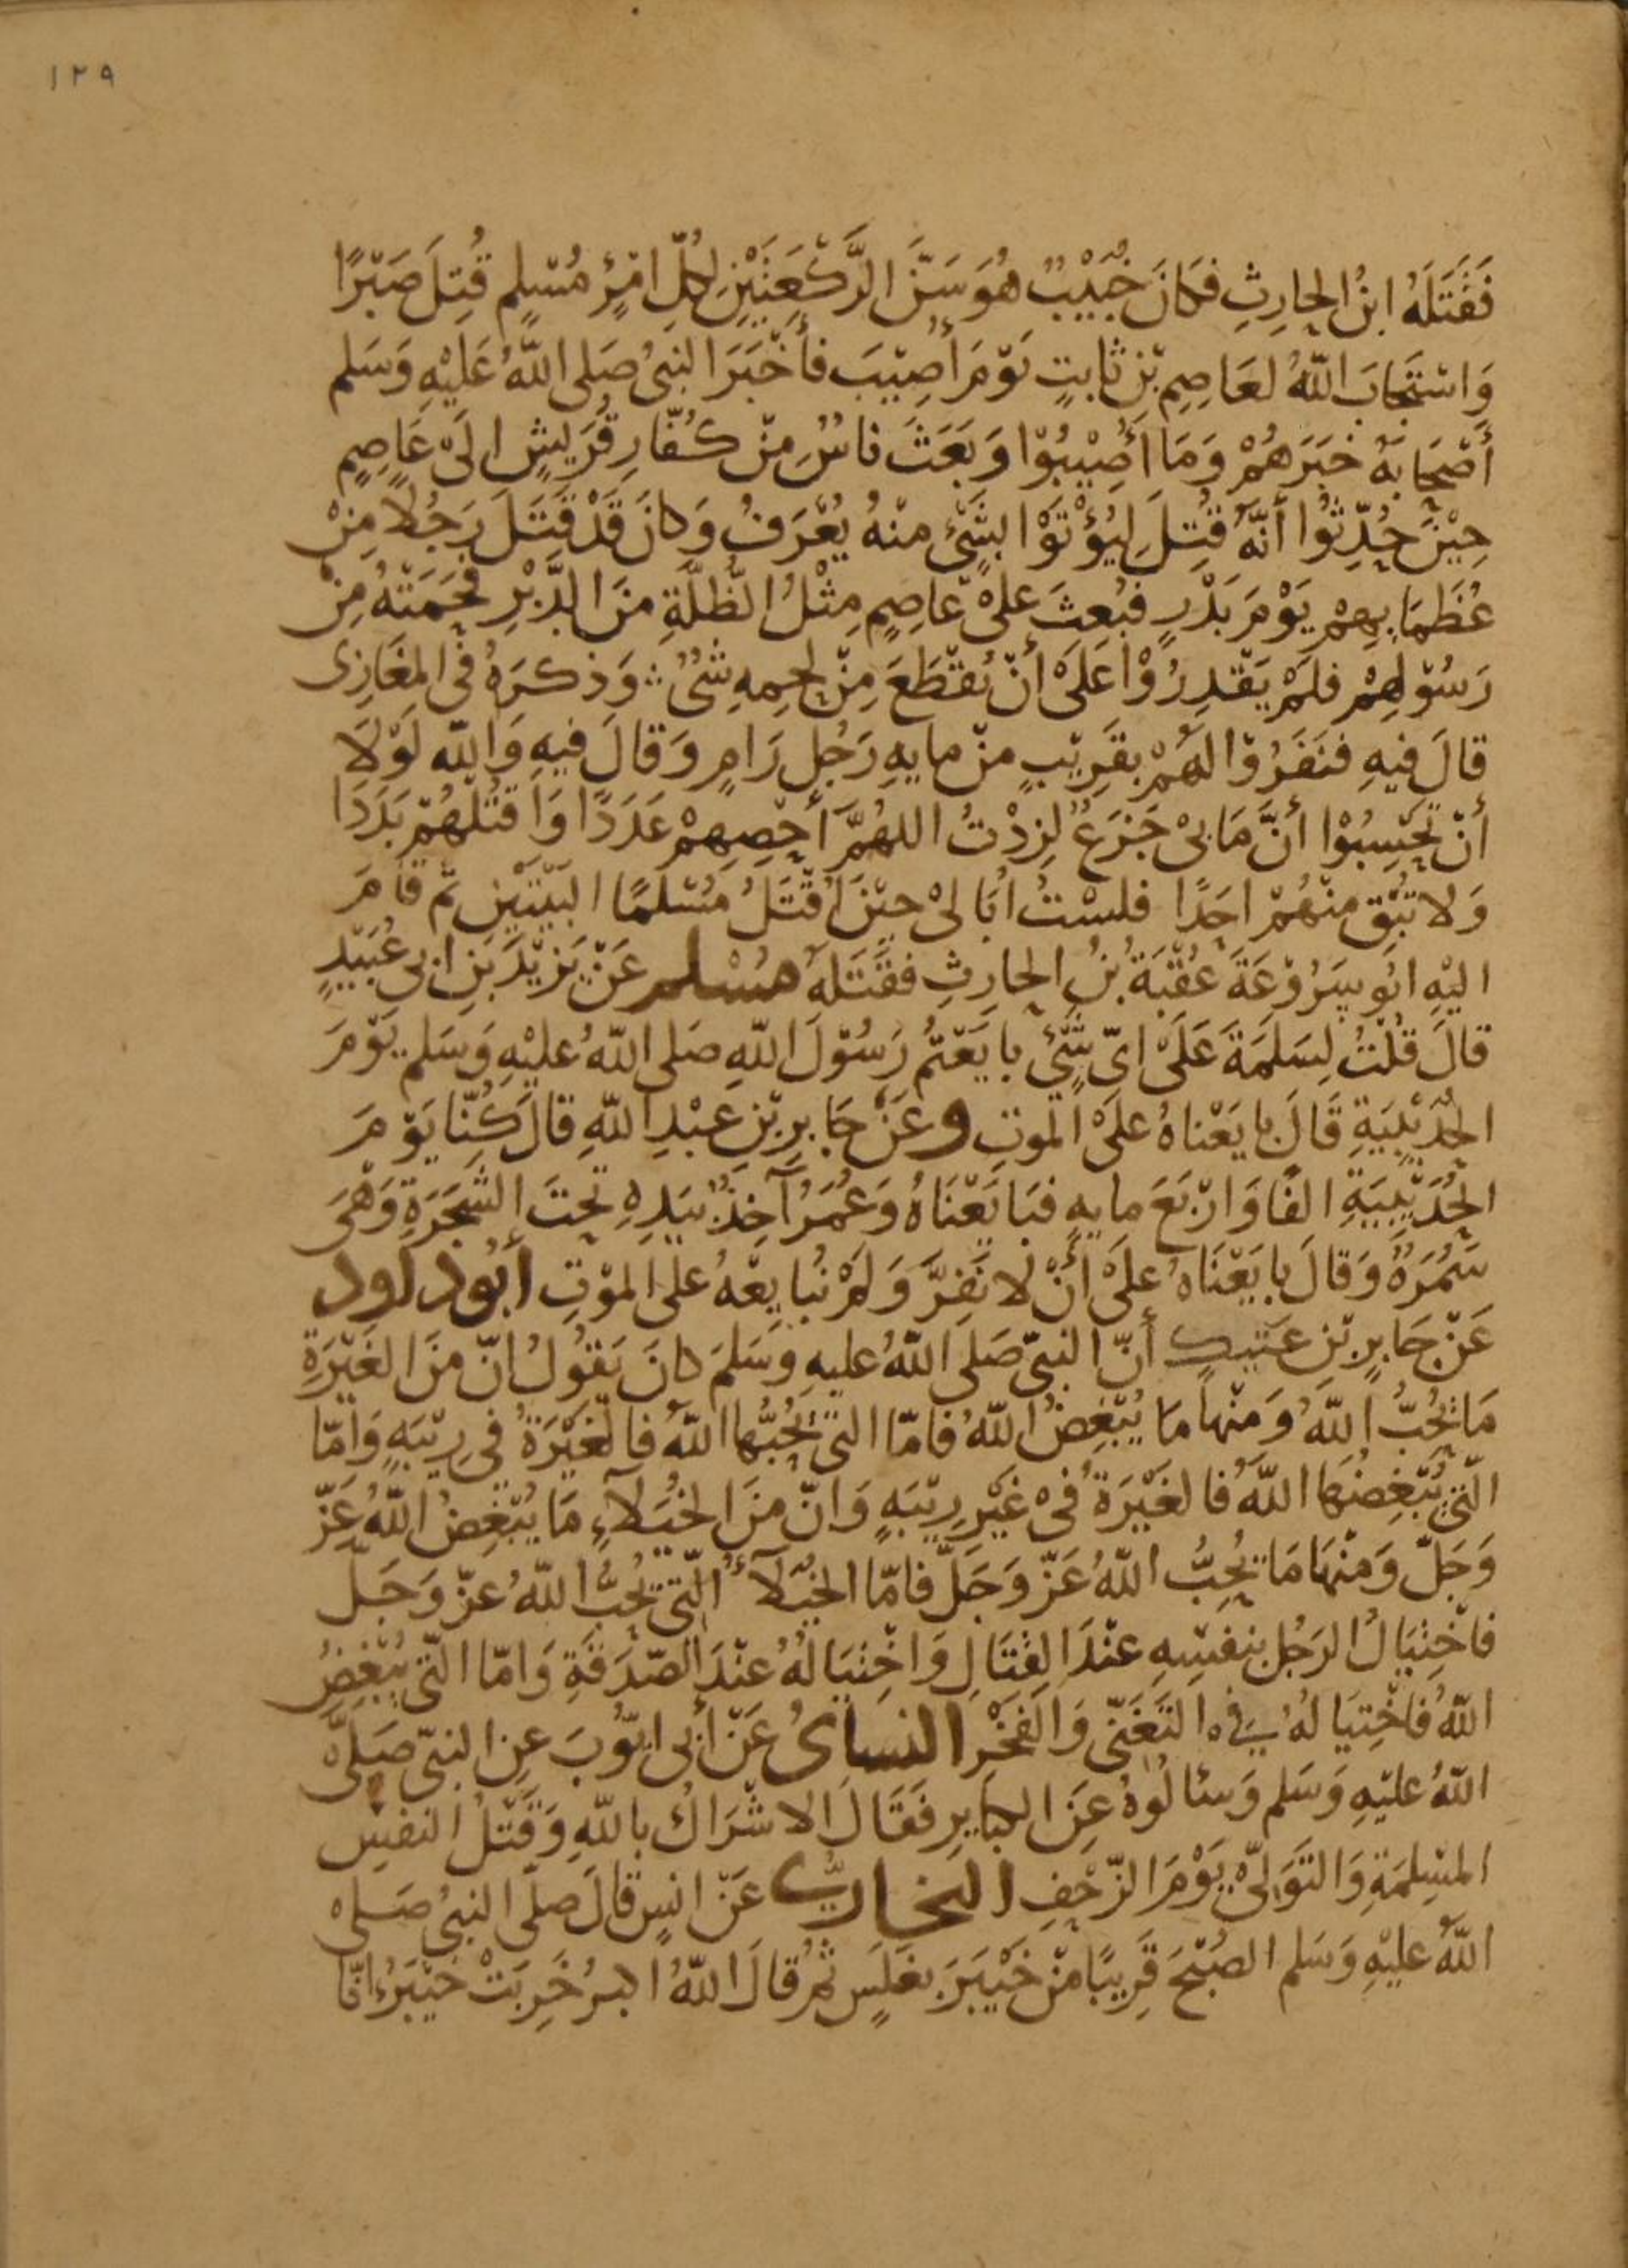 ١٢٩
فَقَتَلَهُ ابْنُ الحارِثِ فَكَانَ خُبَيْبٌ هُوَ سَنَّ الرَّكْعَتَيْنِ لِكُلِّ امْرِئٍ مُسْلِمٍ قُتِلَ صَبْرًا
وَاسْتَجابَ اللّٰهُ لعَاصِمِ بْنِ ثَابتٍ يَوْمَ أُصِيْبَ فأَخْبَرَ النبىُ صَلى اللّٰهُ عَلَيْهِ وَسَلم
أَصْحَابَهُ خَبَرَهُمْ وَمَا أُصِيْبُوْا وَبَعَثَ ناسٌ مِنْ كُفَّارِ قُرَيشٍ الَىْ عَاصِمٍ
حِيْنَ حُدِّثُوا أَنَّهُ قُتِلَ لِيُؤْتَوْا بِشَىْءٍ منْهُ يُعْرَفُ وَكانَ قَدْ قَتَلَ رَجُلاً مِنْ
عُظَمَايِهِمْ يَوْمَ بَدْرٍ فبُعِثَ عَلىْ عَاصِمٍ مِثْلُ الظُّلَّةِ منَ الدَّبْرِ فَحَمَتْهُ مِنْ
رَسُوْلِهِمْ فلَمْ يَقْدِرُوْا عَلَىْ أَنْ يُقْطَعَ مِنْ لحمِهِ شَىْءٌ وَذكرَهُ فى المغَازِى
قالَ فيهِ فنَفَرُوْا لَهُمْ بقَرِيْبٍ منْ مايهِ رَجُلٍ رَامٍ وَقالَ فيهِ وَاللّٰه لَوْلاَ
أَنْ تَحْسِبُوْا أَنَّ مَا بىْ جَزَعٌ لزِدْتُ اللهُمَّ أَحْصِهِمْ عَدَدًا وَاقتُلْهُمْ بَدَدًا
وَلا تُبْقِ منْهُمْ احَدًا فلسْتُ أُبَالىْ حيْنَ أُقْتَلُ مُسْلمًا البَيْتَيْنِ ثم قامَ
اليْهِ ابُو سَرْوَعَةَ عُقْبَةُ بْنُ الحارِثِ فقَتَلَهُ مُسْلم عَنْ يَزيْدَ بنِ ابى عُبَيْدٍ
قالَ قُلْتُ لِسَلمَةَ عَلَىْ اىِّ شَىْءٍ بايَعْتُمْ رَسُوْلَ اللّٰهِ صَلى اللّٰهُ عليْهِ وَسَلم يَوْمَ
الحُدَيْبِيَةِ قَالَ بايَعْناهُ عَلىْ الموْتِ وعَنْ جَابِرِ بْنِ عَبْدِ اللّٰهِ قالَ كُنّا يَوْمَ
الحُدَيْبِيَةِ الفًا وَارْبَعَ مايهٍ فبَايَعْنَاهُ وَعُمَرُ آخِذٌ بيَدِهِ تَحْتَ الشجَرَةِ وَهْىَ
سَمُرَةٌ وَقالَ بايَعْنَاهُ علَىْ أَنْ لا نَفِرَّ وَلَمْ نُبايِعْهُ على الموْتِ أبُو داود
عَنْ جَابرِ بْنِ عَتيكٍ أَنّ النبىّ صَلى اللّٰهُ عليهِ وَسَلمَ كانَ يَقُولُ انّ منَ الغَيْرَةِ
مَا يُحِبُّ اللّٰهُ وَمنْها مَا يُبْغِضُ اللّٰهُ فامّا التى يُحِبُّها اللّٰهُ فالغَيْرَةُ فى رِيْبَةٍ وَامّا
التى يُبْغِضُهَا اللّٰهُ فالغَيْرَةُ فىْ غَيْرِ رِيْبَةٍ وَانّ منَ الخُيَلآءِ مَا يُبْغِضُ اللّٰهُ عَزّ
وَجَلّ وَمنْهَا مَا يُحِبُّ اللّٰهُ عَزّ وَجَلّ فامّا الخُيَلآءُ التى يُحِبُّ اللّٰهُ عزّ وَجَلّ
فاخْتِيَالُ الرَجُلِ بنفسِهِ عنْدَ القتَالِ وَاخْتيَالهُ عنْدَ الصّدَقَةِ وَامّا التى يُبْغِضُ
اللّٰهُ فَاخْتِيَالهُ فى التَغَنّى وَالفَخْرِ النسائُ عَنْ أَبى ايُّوبَ عنِ النبىّ صَلىَّ
اللّٰهُ عليْهِ وَسَلم وَسئالُوهُ عَنِ الكبَايرِ فَقَالَ الاشْرَاكُ باللّٰهِ وَقَتْلُ النفسِ
المسْلِمَةِ وَالتَوَلىّ يَوْمَ الزّحْفِ البخارىُّ عَنْ انسٍ قالَ صَلّى النبىُ صَلى
اللّٰهُ عليْهِ وَسَلم الصُبْحَ قَرِيبًا منْ خَيْبَرَ بغلَسٍ ثمّ قالَ اللّٰهُ اكبرُ خَرِبَتْ خَيْبَرُ انّا